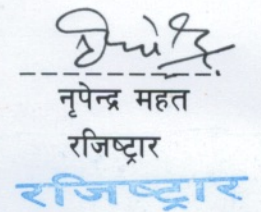 नृपेन्द्र महत
रजिष्ट्रार
रजिष्ट्रार